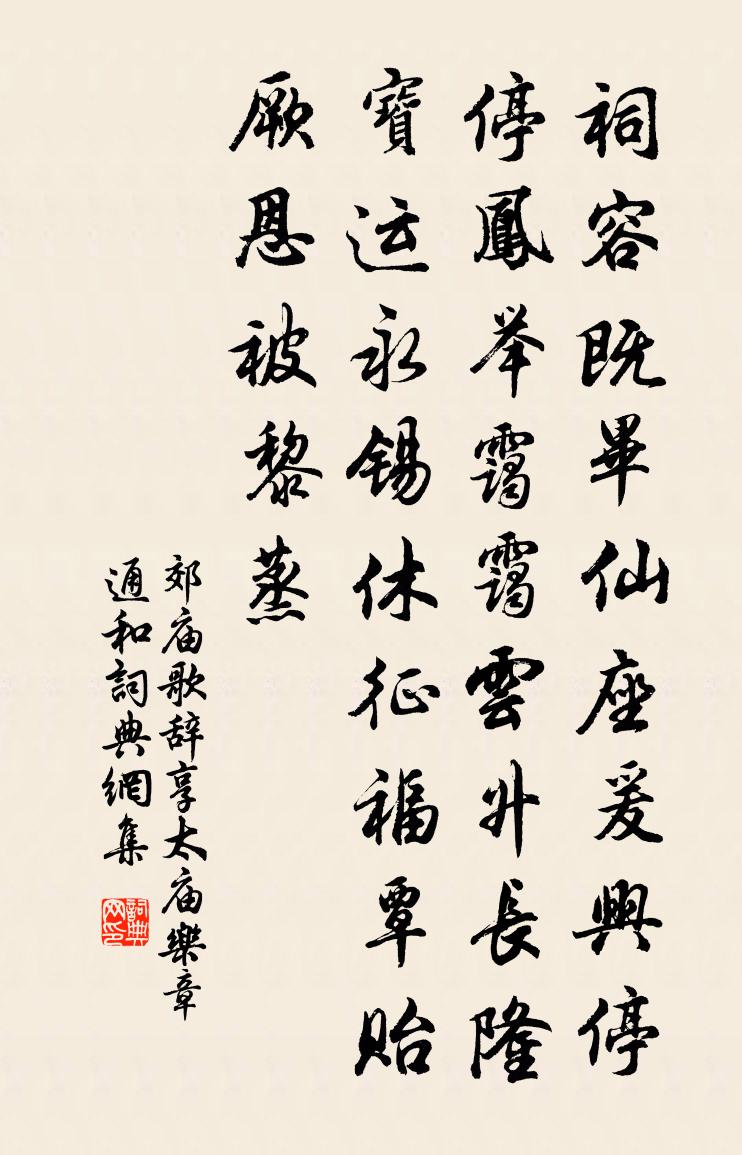 祠容既畢仙座爰興停
停鳳举靄靄雲升長隆
寶运永锡休征福覃贻
厥恩被黎蒸
郊庙歌辞享太庙樂章
通和詞典網集
詞典网印